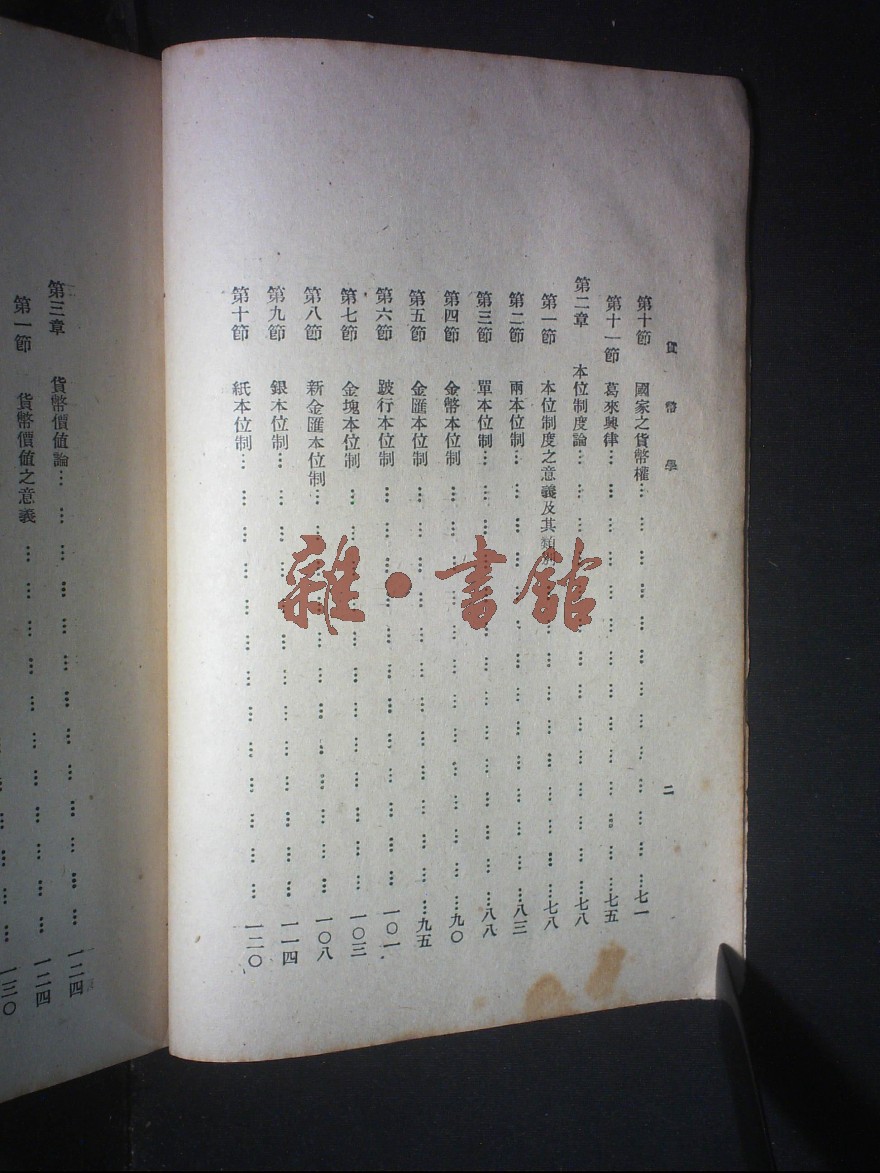 貨幣學
二
第十節 國家之貨幣權……七一
第十一節 葛來興律……七五
第二章 本位制度論……七八
第一節 本位制度之意義及其類別……七八
第二節 兩本位制……八三
第三節 單本位制……八八
第四節 金幣本位制……九〇
第五節 金匯本位制……九五
第六節 跛行本位制……一〇一
第七節 金塊本位制……一〇三
第八節 新金匯本位制……一〇八
第九節 銀本位制……一一四
第十節 紙本位制……一二〇
第三章 貨幣價值論……一二四
第一節 貨幣價值之意義……一二四
一三〇
雜·書館